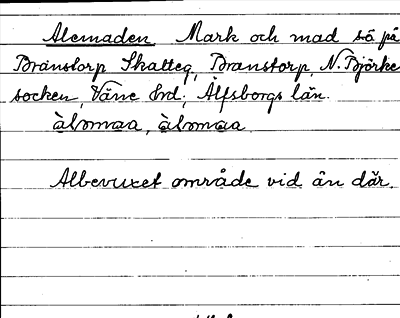 Alemaden. Mark och mad så på
Branstorp Skatteg, Branstorp, N. Björke
socken, Väne hd; Älfsborgs län.
Albevuxet område vid ån där.